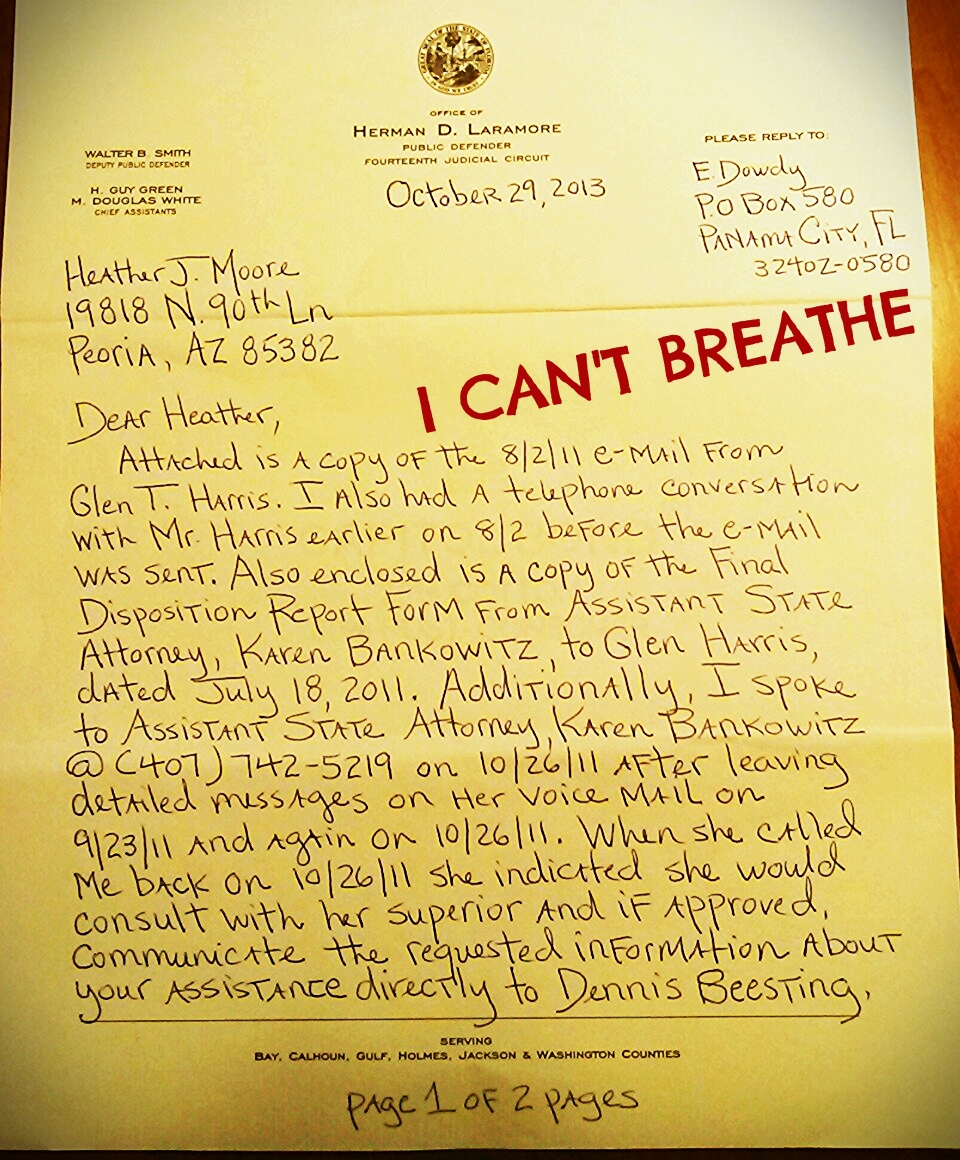 GREAT SEAL OF THE STATE OF FLORIDA
IN GOD WE TRUST
OFFICE OF
HERMAN D. LARAMORE
PUBLIC DEFENDER
FOURTEENTH JUDICIAL CIRCUIT
WALTER B. SMITH
DEPUTY PUBLIC DEFENDER
H. GUY GREEN
M. DOUGLAS WHITE
CHIEF ASSISTANTS
PLEASE REPLY TO:
E. Dowdy
P.O Box 580
Panama City, FL
32402-0580
October 29, 2013
Heather J. Moore
19818 N. 90th Ln
Peoria, AZ 85382
I CAN'T BREATHE
Dear Heather,
Attached is a copy of the 8/2/11 e-mail from
Glen T. Harris. I also had a telephone conversation
with Mr. Harris earlier on 8/2 before the e-mail
was sent. Also enclosed is a copy of the Final
Disposition Report Form from Assistant State
Attorney, Karen Bankowitz, to Glen Harris,
dated July 18, 2011. Additionally, I spoke
to Assistant State Attorney, Karen Bankowitz
@ (407) 742-5219 on 10/26/11 after leaving
detailed messages on her voice mail on
9/23/11 and again on 10/26/11. When she called
me back on 10/26/11 she indicated she would
consult with her superior and if approved,
communicate the requested information about
your assistance directly to Dennis Beesting,
SERVING
BAY, CALHOUN, GULF, HOLMES, JACKSON & WASHINGTON COUNTIES
page 1 of 2 pages